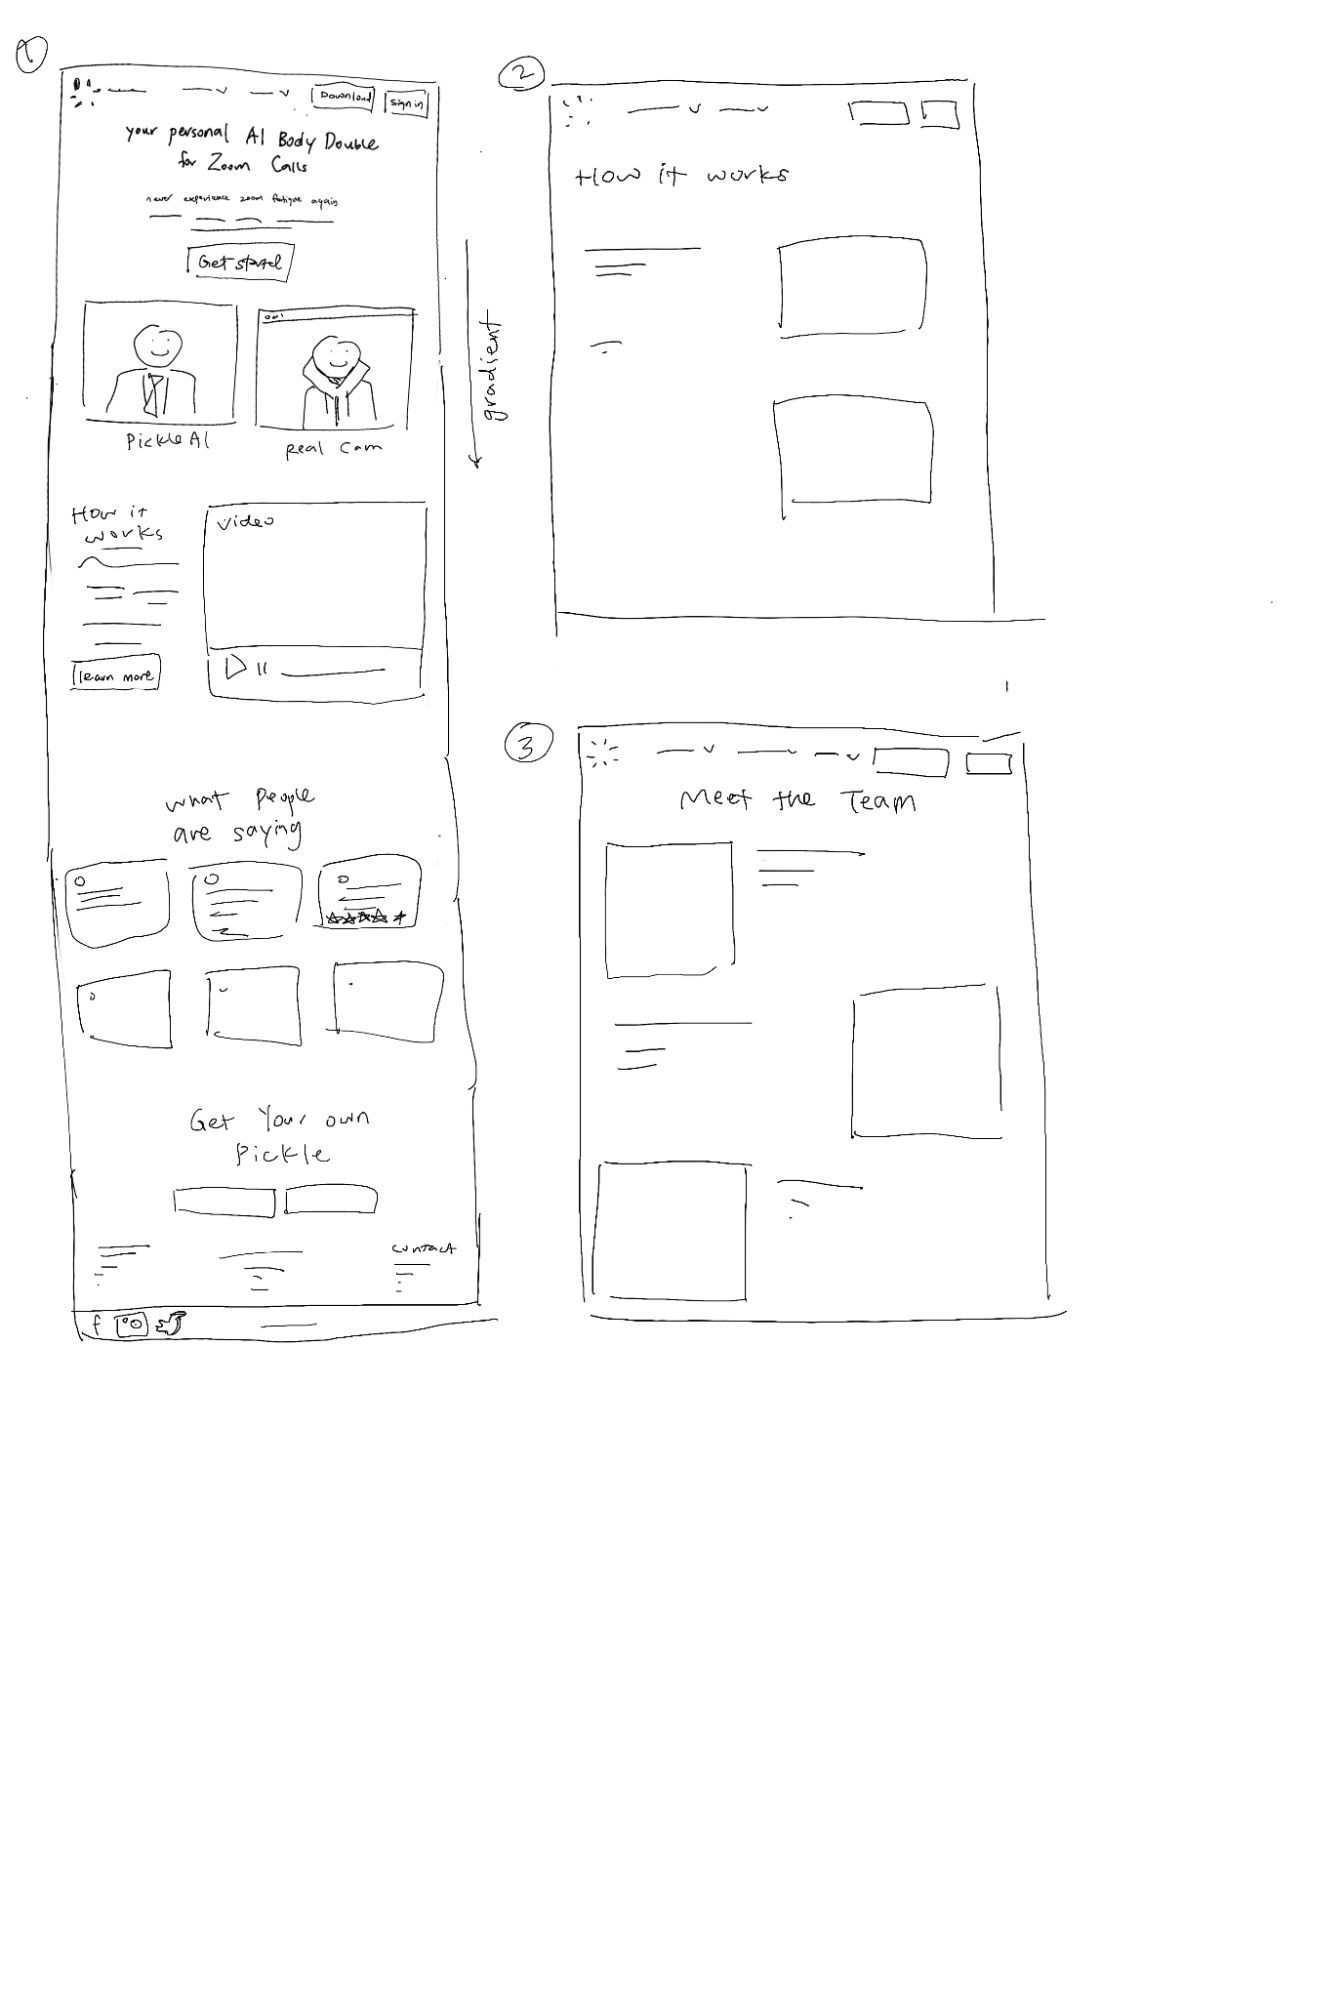 1
Download
Sign in
your personal AI Body Double
for Zoom Calls
never experience zoom fatigue again
Get started
Pickle AI
real Cam
gradient
How it
works
video
learn more
what people
are saying
Get Your own
Pickle
contact
f
2
How it works
3
Meet the Team